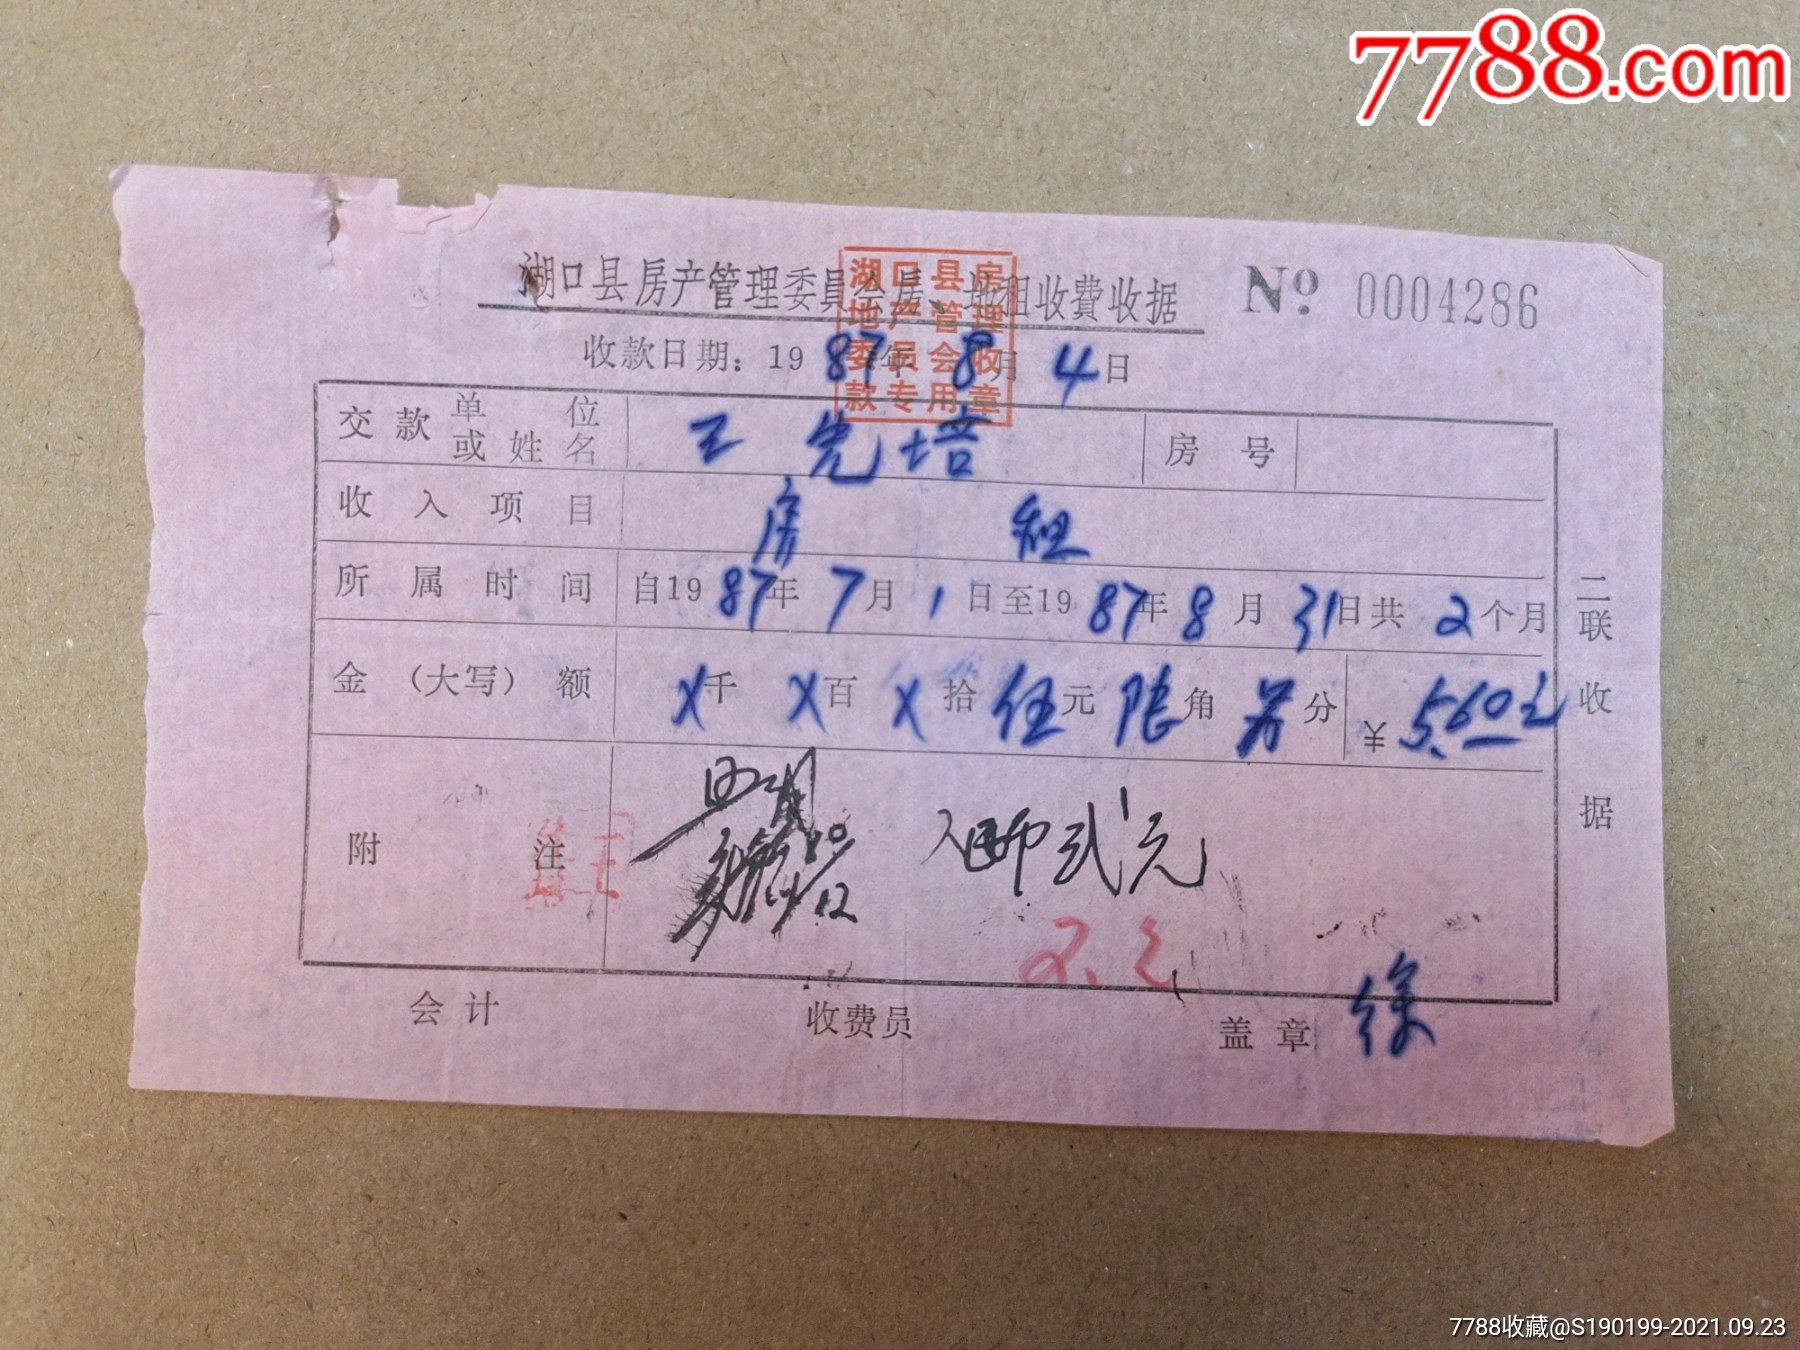 7788.com
湖口县房产管理委員会房、地租收費收据 № 0004286
湖口县房
地产管理
委员会收
款专用章
收款日期：1987年8月4日
交款单位或姓名 王宪培 房号
收入项目 房租
所属时间 自1987年7月1日至1987年8月31日共2个月
金（大写）额 X千X百X拾伍元陆角另分 ¥5.60元
附注
会计 收费员 盖章 徐
二联收据
7788收藏@S190199-2021.09.23